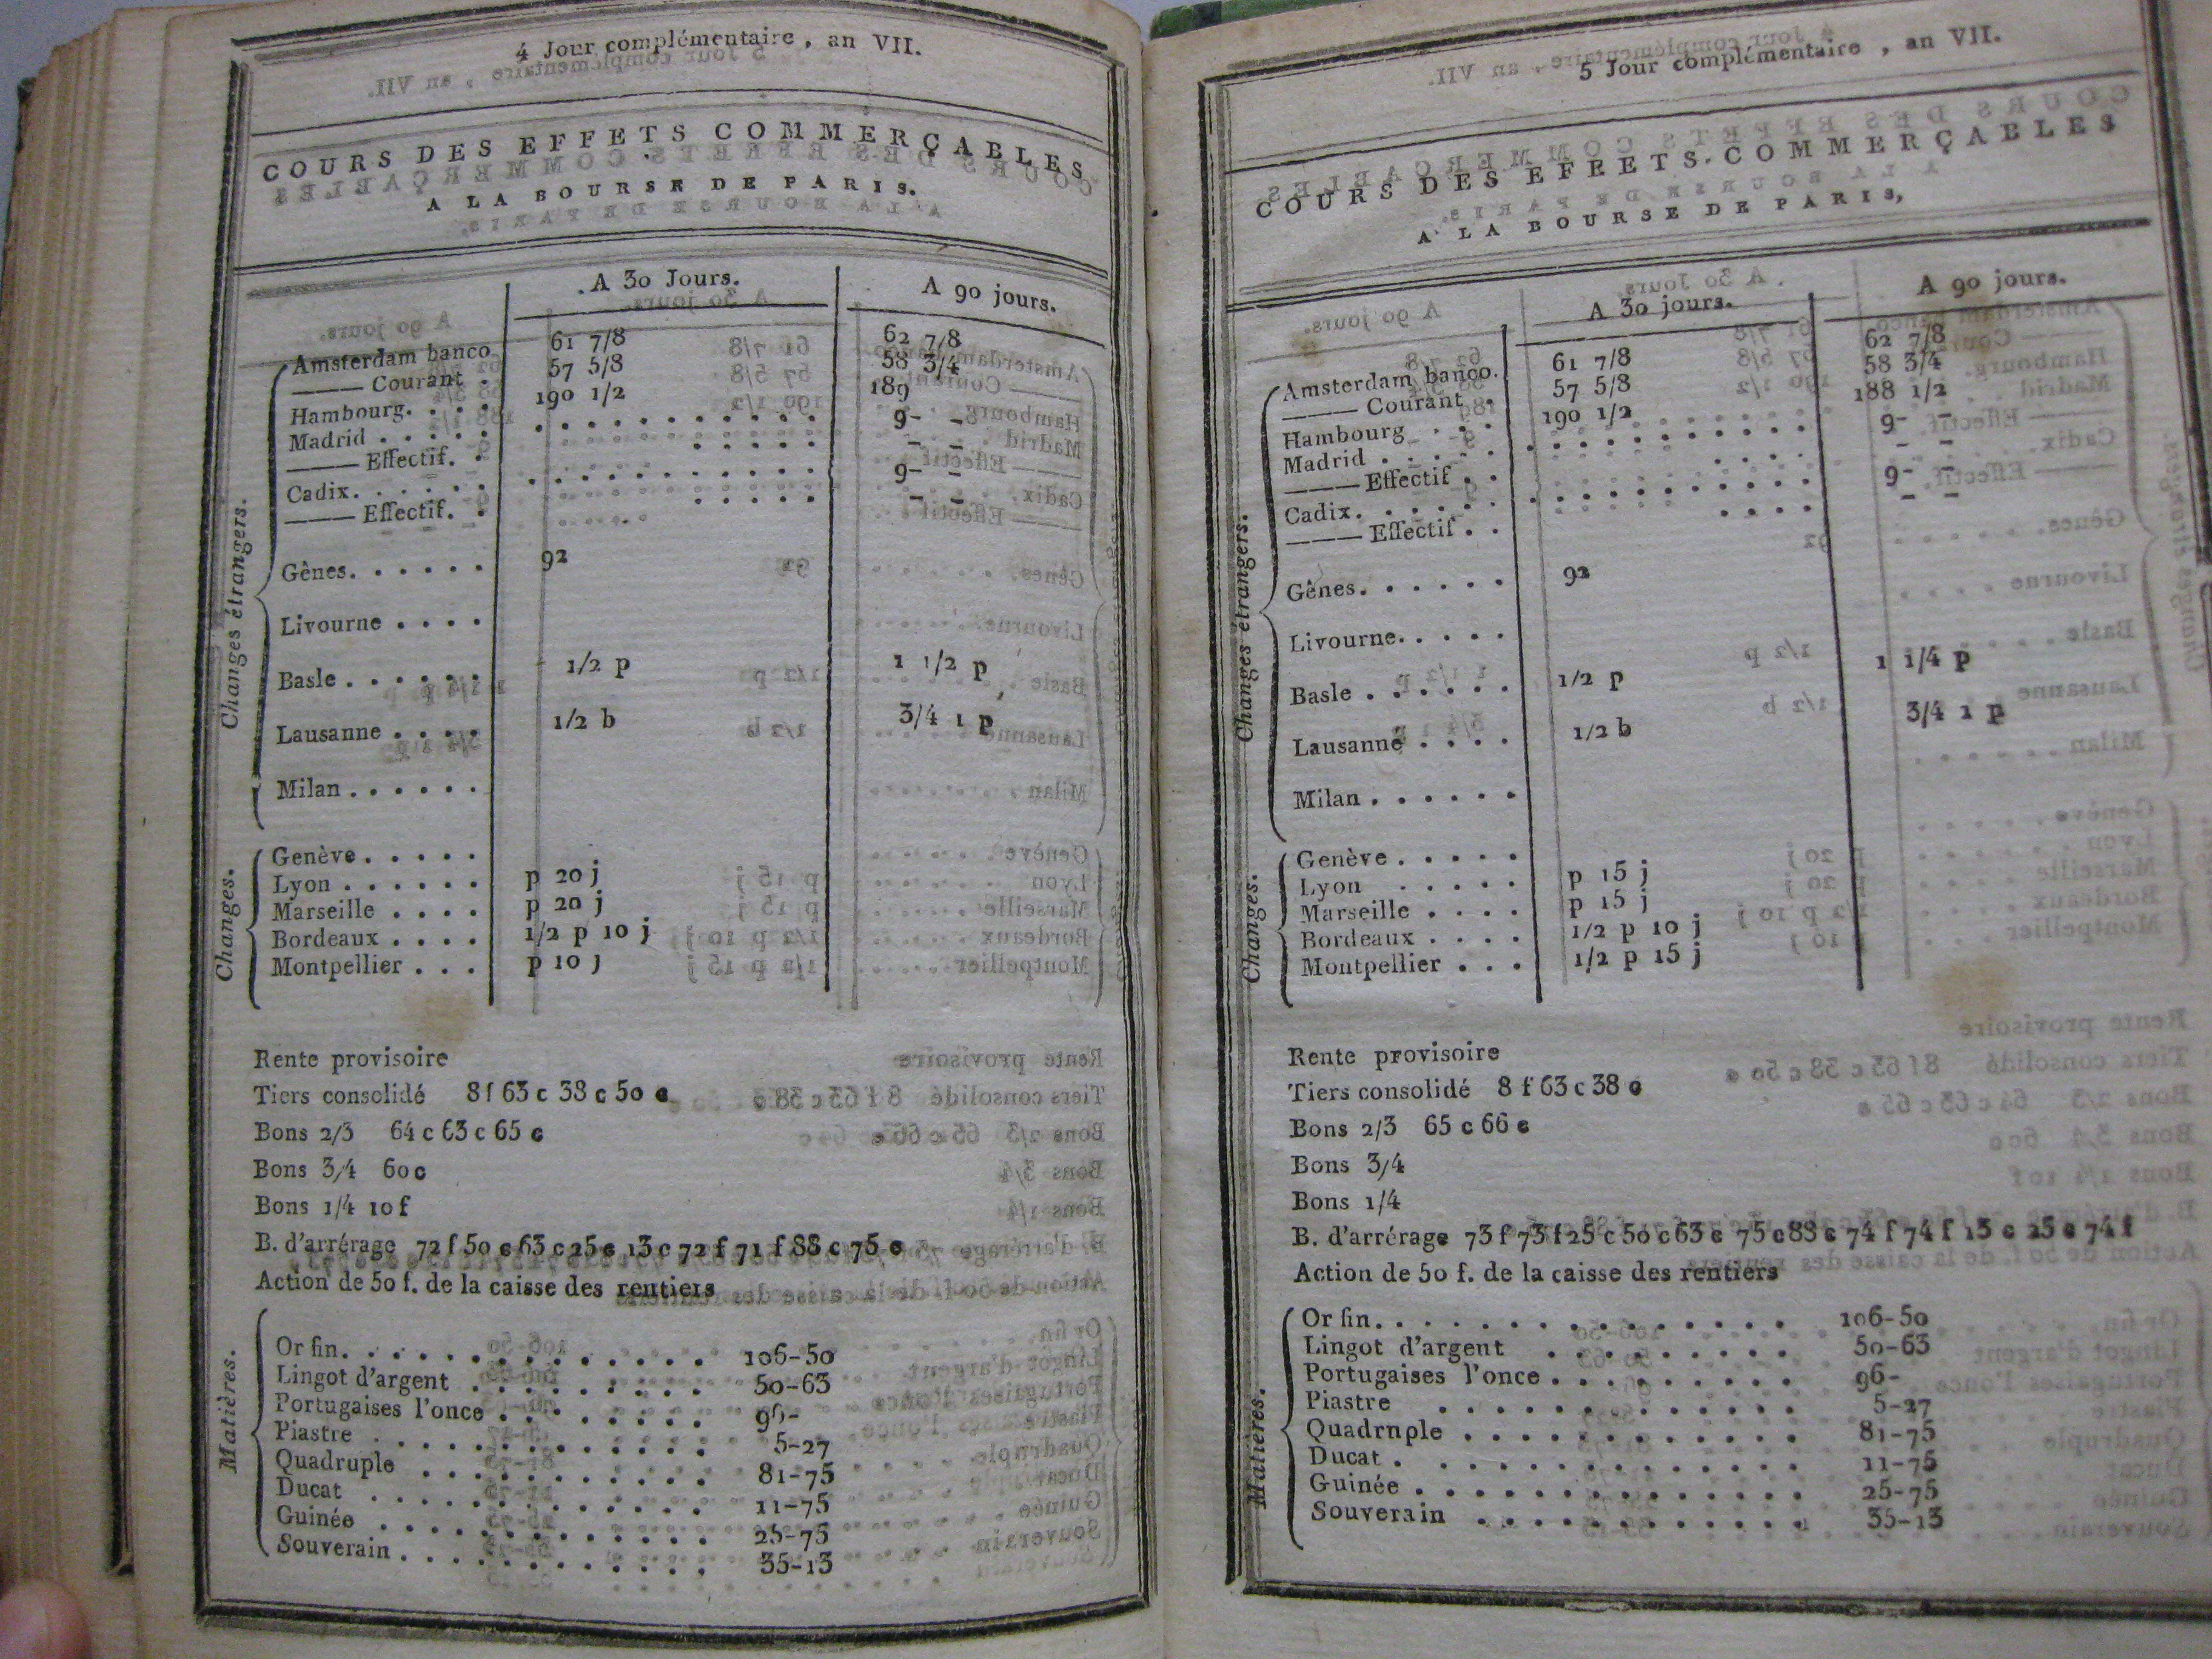 4 Jour complémentaire, an VII.
COURS DES EFFETS COMMERÇABLES
A LA BOURSE DE PARIS.
A 30 Jours. A 90 jours.
Changes étrangers.
Amsterdam banco 61 7/8 62 7/8
——— Courant . 57 5/8 58 3/4
Hambourg. . . . 190 1/2 189
Madrid . . . . . 9- -
——— Effectif. . - -
Cadix. . . . . . 9- -
——— Effectif. . - -
Gênes. . . . . . 92
Livourne . . . .
Basle . . . . . . 1/2 p 1 1/2 p
Lausanne . . . . 1/2 b 3/4 1 p
Milan . . . . . .
Changes.
Genève . . . . .
Lyon . . . . . . p 20 j
Marseille . . . . p 20 j
Bordeaux . . . . 1/2 p 10 j
Montpellier . . . p 10 j
Rente provisoire
Tiers consolidé 8 f 63 c 38 c 50 c
Bons 2/3 64 c 63 c 65 c
Bons 3/4 60 c
Bons 1/4 10 f
B. d'arrérage 72 f 50 c 63 c 25 c 13 c 72 f 71 f 88 c 75 c
Action de 50 f. de la caisse des rentiers
Matières.
Or fin. . . . . . . . . . . . . . 106-50
Lingot d'argent . . . . . . . . . 50-63
Portugaises l'once . . . . . . . . 96-
Piastre . . . . . . . . . . . . . 5-27
Quadruple . . . . . . . . . . . 81-75
Ducat . . . . . . . . . . . . . 11-75
Guinée . . . . . . . . . . . . . 25-75
Souverain . . . . . . . . . . . . 35-13
5 Jour complémentaire, an VII.
COURS DES EFFETS COMMERÇABLES
A LA BOURSE DE PARIS,
A 30 jours. A 90 jours.
Changes étrangers.
Amsterdam banco. 61 7/8 62 7/8
——— Courant . 57 5/8 58 3/4
Hambourg . . . 190 1/2 188 1/2
Madrid . . . . . 9- -
——— Effectif . . - -
Cadix. . . . . . 9- -
——— Effectif . . - -
Gênes. . . . . . 92
Livourne. . . . .
Basle . . . . . . 1/2 p 1 1/4 p
Lausanne . . . . 1/2 b 3/4 1 p
Milan . . . . . .
Changes.
Genève . . . . .
Lyon . . . . . p 15 j
Marseille . . . . p 15 j
Bordeaux . . . . 1/2 p 10 j
Montpellier . . . 1/2 p 15 j
Rente provisoire
Tiers consolidé 8 f 63 c 38 c
Bons 2/3 65 c 66 c
Bons 3/4
Bons 1/4
B. d'arrérage 73 f 73 f 25 c 50 c 63 c 75 c 88 c 74 f 74 f 13 c 25 c 74 f
Action de 50 f. de la caisse des rentiers
Matières.
Or fin. . . . . . . . . . . . . . 106-50
Lingot d'argent . . . . . . . . . 50-63
Portugaises l'once . . . . . . . . . 96-
Piastre . . . . . . . . . . . . 5-27
Quadrnple . . . . . . . . . . . . 81-75
Ducat . . . . . . . . . . . . . 11-75
Guinée . . . . . . . . . . . . . . 25-75
Souverain . . . . . . . . . . . . 35-13